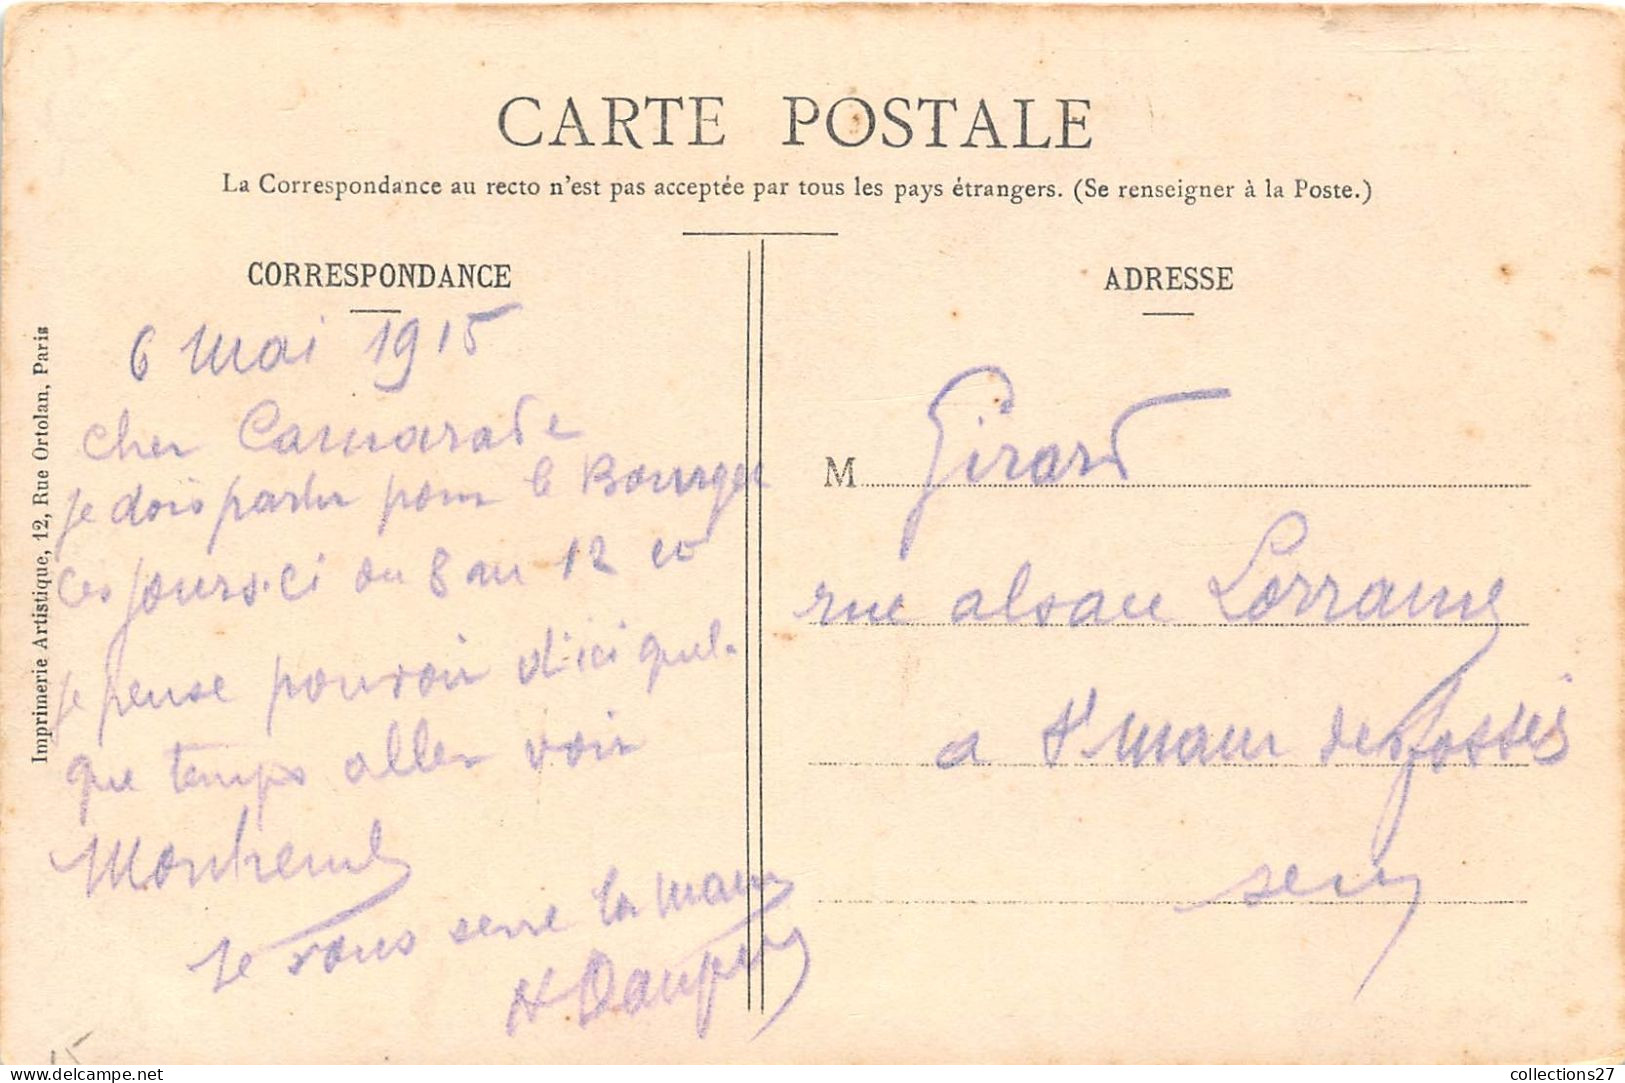 CARTE POSTALE
La Correspondance au recto n'est pas acceptée par tous les pays étrangers. (Se renseigner à la Poste.)
CORRESPONDANCE
6 Mai 1915
cher Camarade
je dois partir pour le Bourget
ces jours-ci du 8 au 12 et
je pense pouvoir d'ici quel-
que temps aller voir
je vous serre la main
Imprimerie Artistique, 12, Rue Ortolan, Paris
ADRESSE
M Girard
rue alsace Lorraine
a St Maur des fossés
seine
collections27